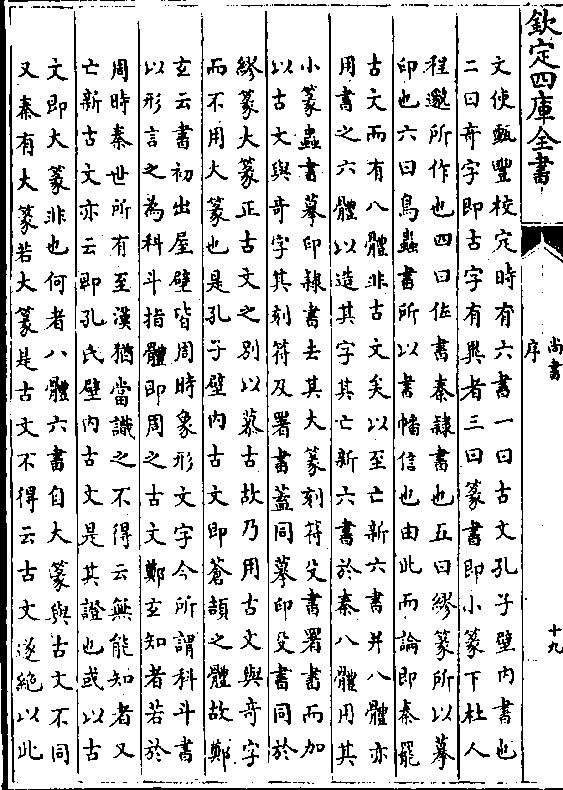 欽定四庫全書
尚書
序
十九
文使甄豐校定時有六書一曰古文孔子壁内書也
二曰奇字即古字有異者三曰篆書即小篆下杜人
程邈所作也四曰佐書秦隸書也五曰繆篆所以摹
印也六曰鳥蟲書所以書幡信也由此而論即秦罷
古文而有八體非古文矣以至亡新六書并八體亦
用書之六體以造其字其亡新六書於秦八體用其
小篆蟲書摹印隸書去其大篆刻符殳書署書而加
以古文與奇字其刻符及署書蓋同摹印殳書同於
繆篆大篆正古文之别以慕古故乃用古文與奇字
而不用大篆也是孔子壁内古文即蒼頡之體故鄭
玄云書初出屋壁皆周時象形文字今所謂科斗書
以形言之為科斗指體即周之古文鄭玄知者若於
周時秦世所有至漢猶當識之不得云無能知者又
亡新古文亦云即孔氏壁内古文是其證也或以古
文即大篆非也何者八體六書自大篆與古文不同
又秦有大篆若大篆是古文不得云古文遂絶以此